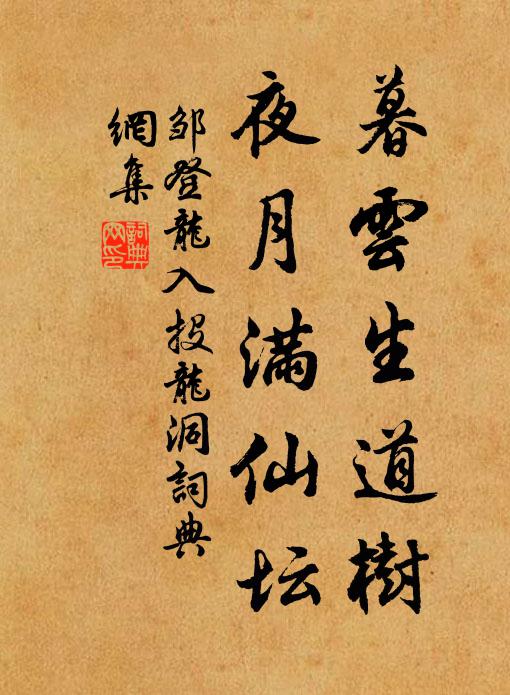 暮雲生道樹
夜月满仙坛
邹登龍入投龍洞詞典
網集
詞典網印